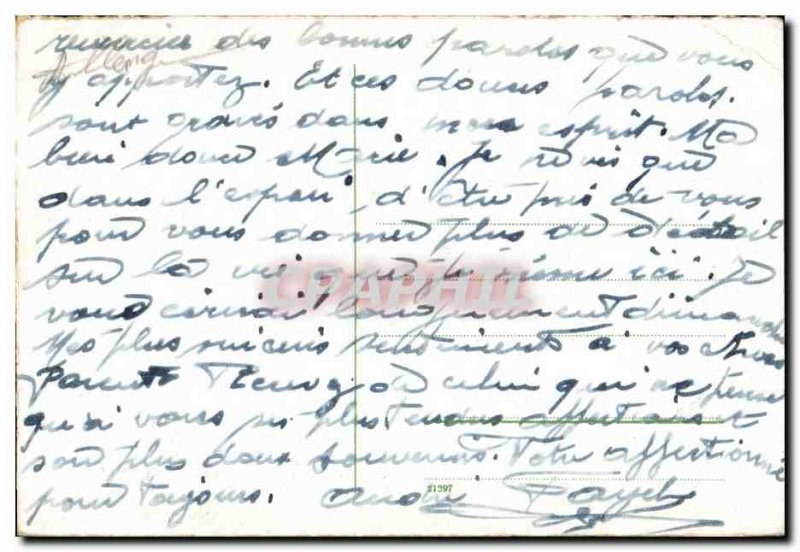 remercie des bonnes paroles que vous
y apportez. Et ces douces paroles.
sont gravés dans mon esprit. Ma
bien douce Marie. Je ne vis que
dans l'espoir, d'être près de vous
pour vous donner plus de détail
sur la vie que je mène ici. Je
vous longuement dimanche
Mes plus sincères sentiments à vos chers
Parents de celui qui ne pense
qu'à vous ses plus tendres affections
son plus doux souvenir. Votre affectionné
pour toujours. André
CPAPHIL
21397